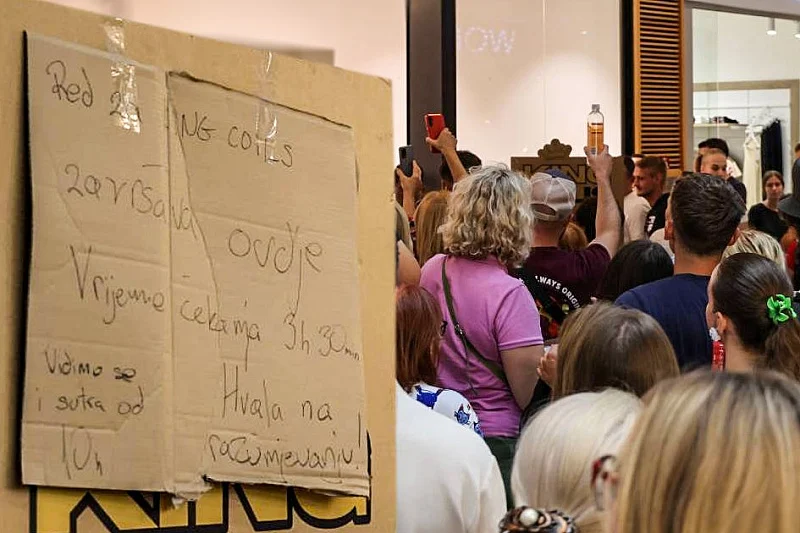 Red za KING COILS
završava ovdje
Vrijeme čekanja 3h 30min
Vidimo se
i sutra od
10h
Hvala na
razumjevanju!
KING
HOW
KING
ALWAYS ORIGIN